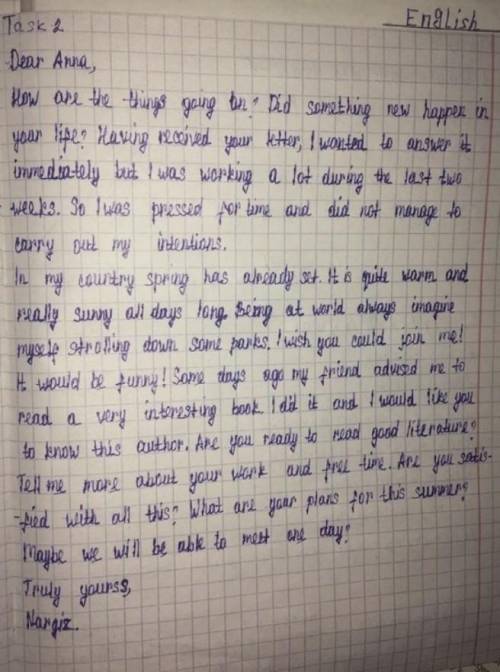 English
Task 2
Dear Anna,
How are the things going on? Did something new happen in
your life? Having received your letter, I wanted to answer it
immediately but I was working a lot during the last two
weeks. So I was pressed for time and did not manage to
carry out my intentions.
In my country spring has already set. It is quite warm and
really sunny all days long. Being at world always imagine
myself strolling down some parks. I wish you could join me!
It would be funny! Some days ago my friend advised me to
read a very interesting book. I did it and I would like you
to know this author. Are you ready to read good literature?
Tell me more about your work and free time. Are you satis-
-fied with all this? What are your plans for this summer?
Maybe we will be able to meet one day?
Truly yourss,
Nargiz.